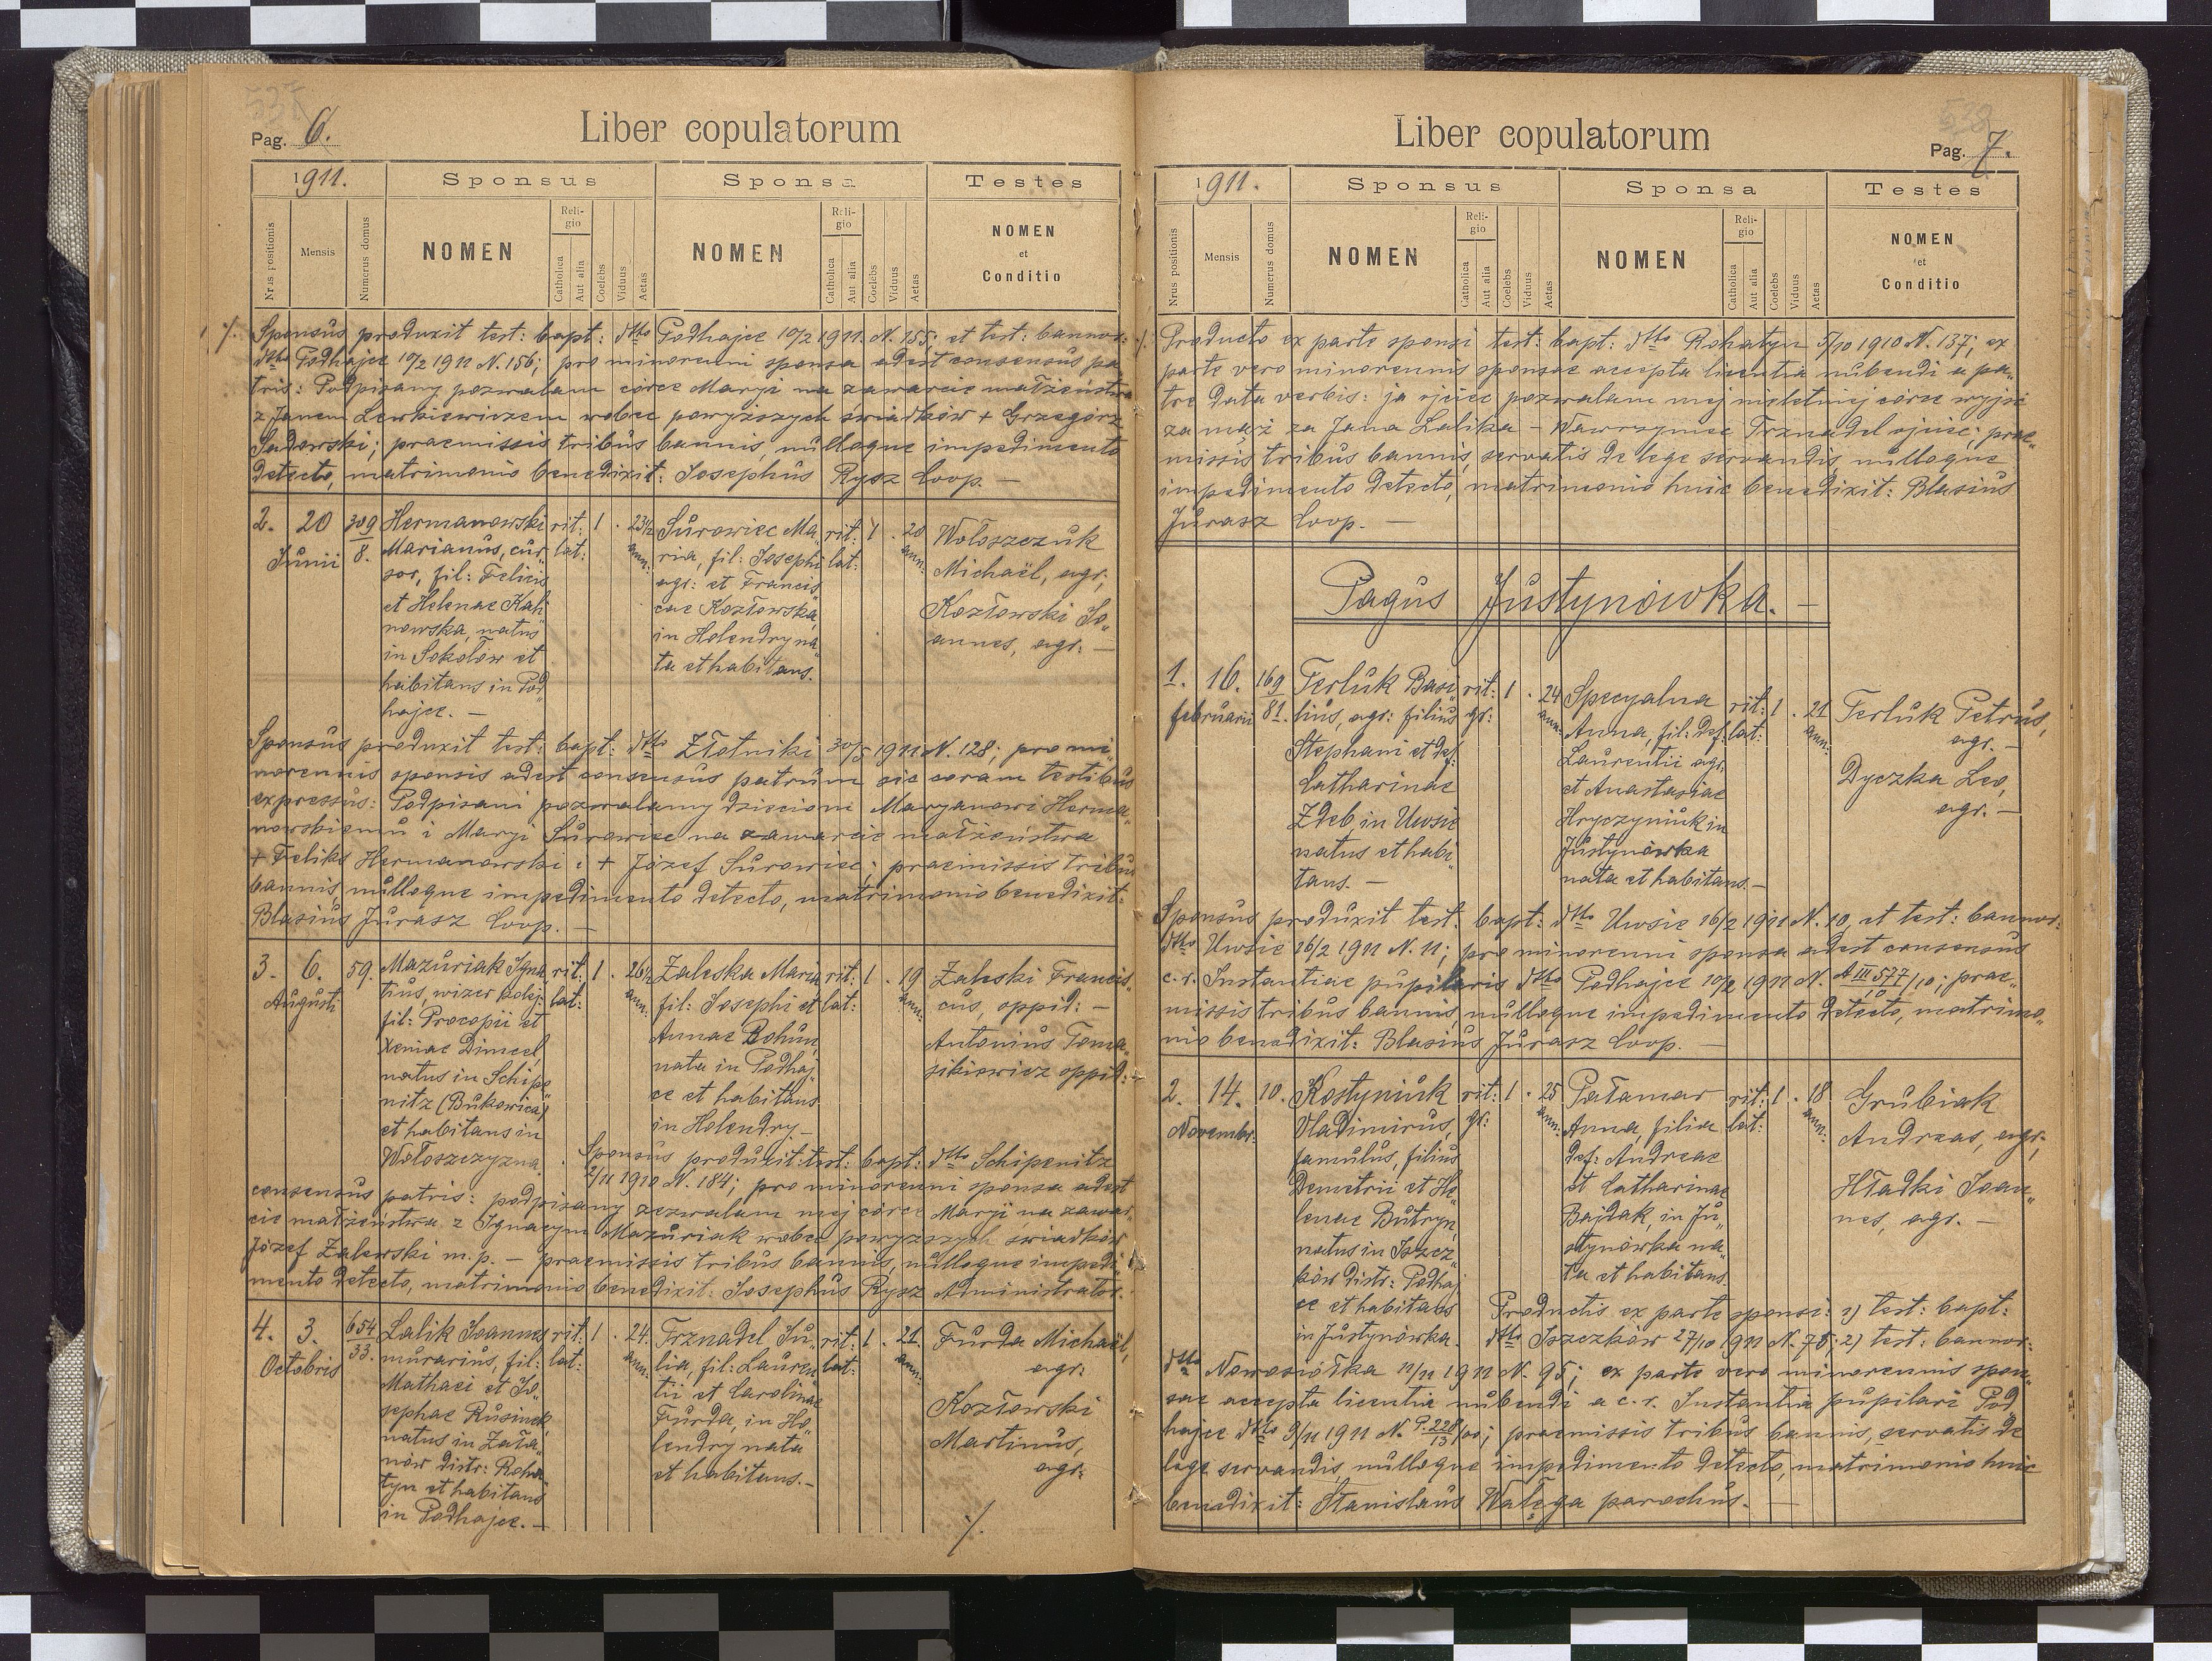 537
Pag. 6.
Liber copulatorum
1911.
Sponsus
Sponsa
Testes
Nrus positionis
Mensis
Numerus domus
NOMEN
Religio
Catholica
Aut alia
Coelebs
Viduus
Aetas
NOMEN
Religio
Catholica
Aut alia
Coelebs
Viduus
Aetas
NOMEN
et
Conditio
Sponsus produxit test: bapt: dtto Podhajce 10/2 1911. N. 155; et test: bannor:
dtto Podhajce 10/2 1911 N. 156; pro minorenni sponsa adest consensus pa„
tris: Podpisany pozwalam córce Maryi na zawarcie małżeństwa
z Janem Lewkiewiczem wobec powyższych świadków + Grzegórz
Sadowski; praemissis tribus bannis, nulloque impedimento
detecto, matrimonio benedixit: Josephus Rysz Coop. —
2. 20 Junii 309/8.
Hermanowski
Marianus, cur„
sor, fil: Felicis
et Helenae Kali
nowska, natus
in Sokołów et
habitans in Pod„
hajce. —
rit: lat: 1 . 23½ ann:
Surowiec Ma„
ria, fil: Josephi
agr: et Francis„
cae Kozłowska,
in Holendry na„
ta et habitans.
rit: lat: 1 . 20 ann:
Wołoszczuk
Michaël, agr;
Kozłowski Jo„
annes, agr: —
Sponsus produxit test: bapt: dtto Złotniki 30/5 1911 N. 128; pro mi„
norennis sponsis adest consensus patrum sic coram testibus
expressus: Podpisani pozwalamy dzieciom Maryanowi Herma„
nowskiemu i Maryi Surowiec na zawarcie małżeństwa
+ Feliks Hermanowski i + Józef Surowiec; praemissis tribus
bannis, nulloque impedimento detecto, matrimonio benedixit:
Blasius Jurasz Coop. —
3. 6. Augusti 59.
Mazuriak Igna„
tius, wizer kolej:
fil: Procopii et
Xeniae Dimeel,
natus in Schipe„
nitz (Bukowica)
et habitans in
Wołoszczyzna.
rit: lat: 1 . 26½ ann:
Zaleska Maria
fil: Josephi et
Annae Bohun,
nata in Podhaj„
ce et habitans
in Holendry. —
rit: lat: 1 . 19 ann:
Zaleski Francis„
cus, oppid: —
Antonius Toma„
sikiewicz oppid:
Sponsus produxit: test: bapt: dtto Schipenitz
2/11 1910 N. 184; pro minorenni sponsa adest
consensus patris: podpisany zezwalam mej córce Maryi na zawar„
cie małżeństwa z Ignacym Mazuriak wobec powyższych świadków
Józef Zalewski m. p. — praemissis tribus bannis, nulloque impedi„
mento detecto, matrimonio benedixit: Josephus Rysz Administrator.
4. 3. Octobris 654/33.
Lalik Joannes
murarius, fil:
Mathaei et Jo„
sephae Rusinek,
natus in Zała„
nów distr: Roha„
tyn et habitans
in Podhajce. —
rit: lat: 1 . 24. ann:
Trznadel Ju„
lia, fil: Lauren„
tii et Carolinae
Furda, in Ho„
lendry nata
et habitans. —
rit: lat: 1 . 21. ann:
Furda Michaël,
agr:
Kozłowski
Martinus,
agr:
./.
538
Liber copulatorum
Pag. 7.
1911.
Sponsus
Sponsa
Testes
Nrus positionis
Mensis
Numerus domus
NOMEN
Religio
Catholica
Aut alia
Coelebs
Viduus
Aetas
NOMEN
Religio
Catholica
Aut alia
Coelebs
Viduus
Aetas
NOMEN
et
Conditio
./. Producto ex parte sponsi test: bapt: dtto Rohatyn 5/10 1910 N. 137; ex
parte vero minorennis sponsae accepta licentia nubendi a pa„
tre data verbis: ja ojciec pozwalam mej nieletniej córce wyjść
za mąż za Jana Lalika — Wawrzyniec Trznadel ojciec; prae„
missis tribus bannis, servatis de lege servandis, nulloque
impedimento detecto, matrimonio huic benedixit: Blasius
Jurasz Coop. —
Pagus Justynówka. —
1. 16. februarii 169/81.
Terluk Basi„
lius, agr: filius
Stephani et def:
Catharinae
Zdeb, in Uwsie
natus et habi„
tans. —
rit: gr: 1 . 24 ann:
Specyalna
Anna, fil: def:
Laurentii agr:
et Anastasiae
Hryczyniuk in
Justynówka
nata et habitans. —
rit: lat: 1 . 21 ann:
Terluk Petrus,
agr. —
Dyczka Leo,
agr. —
Sponsus produxit test: bapt: dtto Uwsie 16/2 1911 N. 10, et test: bannor:
dtto Uwsie 16/2 1911 N. 11; pro minorenni sponsa adest consensus
c. r. Instantiae pupilaris dtto Podhajce 10/2 1911 N. A III 577/10 /10; prae„
missis tribus bannis, nulloque impedimento detecto, matrimo„
nio benedixit: Blasius Jurasz Coop. —
2. 14. Novembr: 10.
Kostyniuk
Vladimirus,
famulus, filius
Demetrii et He„
lenae Butryn,
natus in Iszcz„
ków distr: Podhaj„
ce et habitans
in Justynówka.
rit: gr: 1 . 25 ann:
Pałamar
Anna, filia
def: Andreae
et Catharinae
Bajdak, in Ju„
stynówka na„
ta et habitans.
rit: lat: 1 . 18 ann:
Grubiak
Andreas, agr;
Hładki Joan„
nes, agr. —
Productis ex parte sponsi: 1) test: bapt:
dtto Iszczków 27/10 1911 N. 78; 2) test: bannor:
dtto Nowosiółka 11/11 1911 N. 95; ex parte vero minorennis spon„
sae accepta licentia nubendi a c. r. Instantia pupilari Pod„
hajce dtto 9/11 1911 N. P. 228/13 /00; praemissis tribus bannis, servatis de
lege servandis, nulloque impedimento detecto, matrimonio huic
benedixit: Stanislaus Wałęga parochus. —